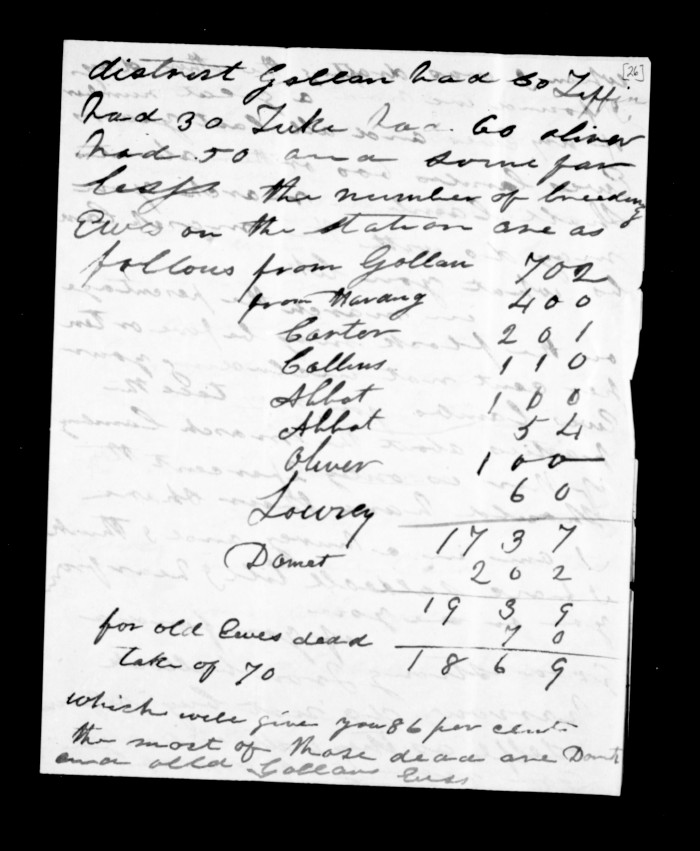 [26]
district Gollan had 80 Teffi
had 30 Tuke had 60 oliver
had 50 and some far
less the number of breeding
Ewe on the station are as
follows from Gollan 702
from Harding 400
Carter 201
Collins 110
Abbot 100
Abbot 54
Oliver 100
60
Lowrey
1737
Domet 202
1939
for old Ewes dead 70
take of 70 1869
which will give you 86 per cent
the most of those dead are Domts
and olld Gollans Ewes